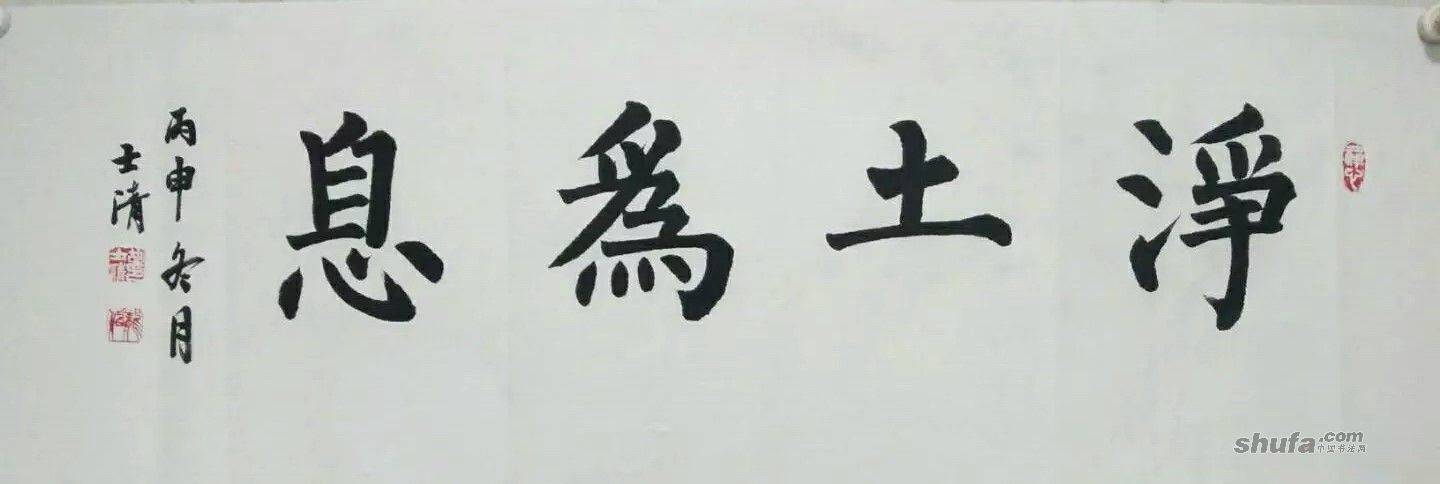 淨土為息
丙申冬月
士清
shufa.com
中国书法网